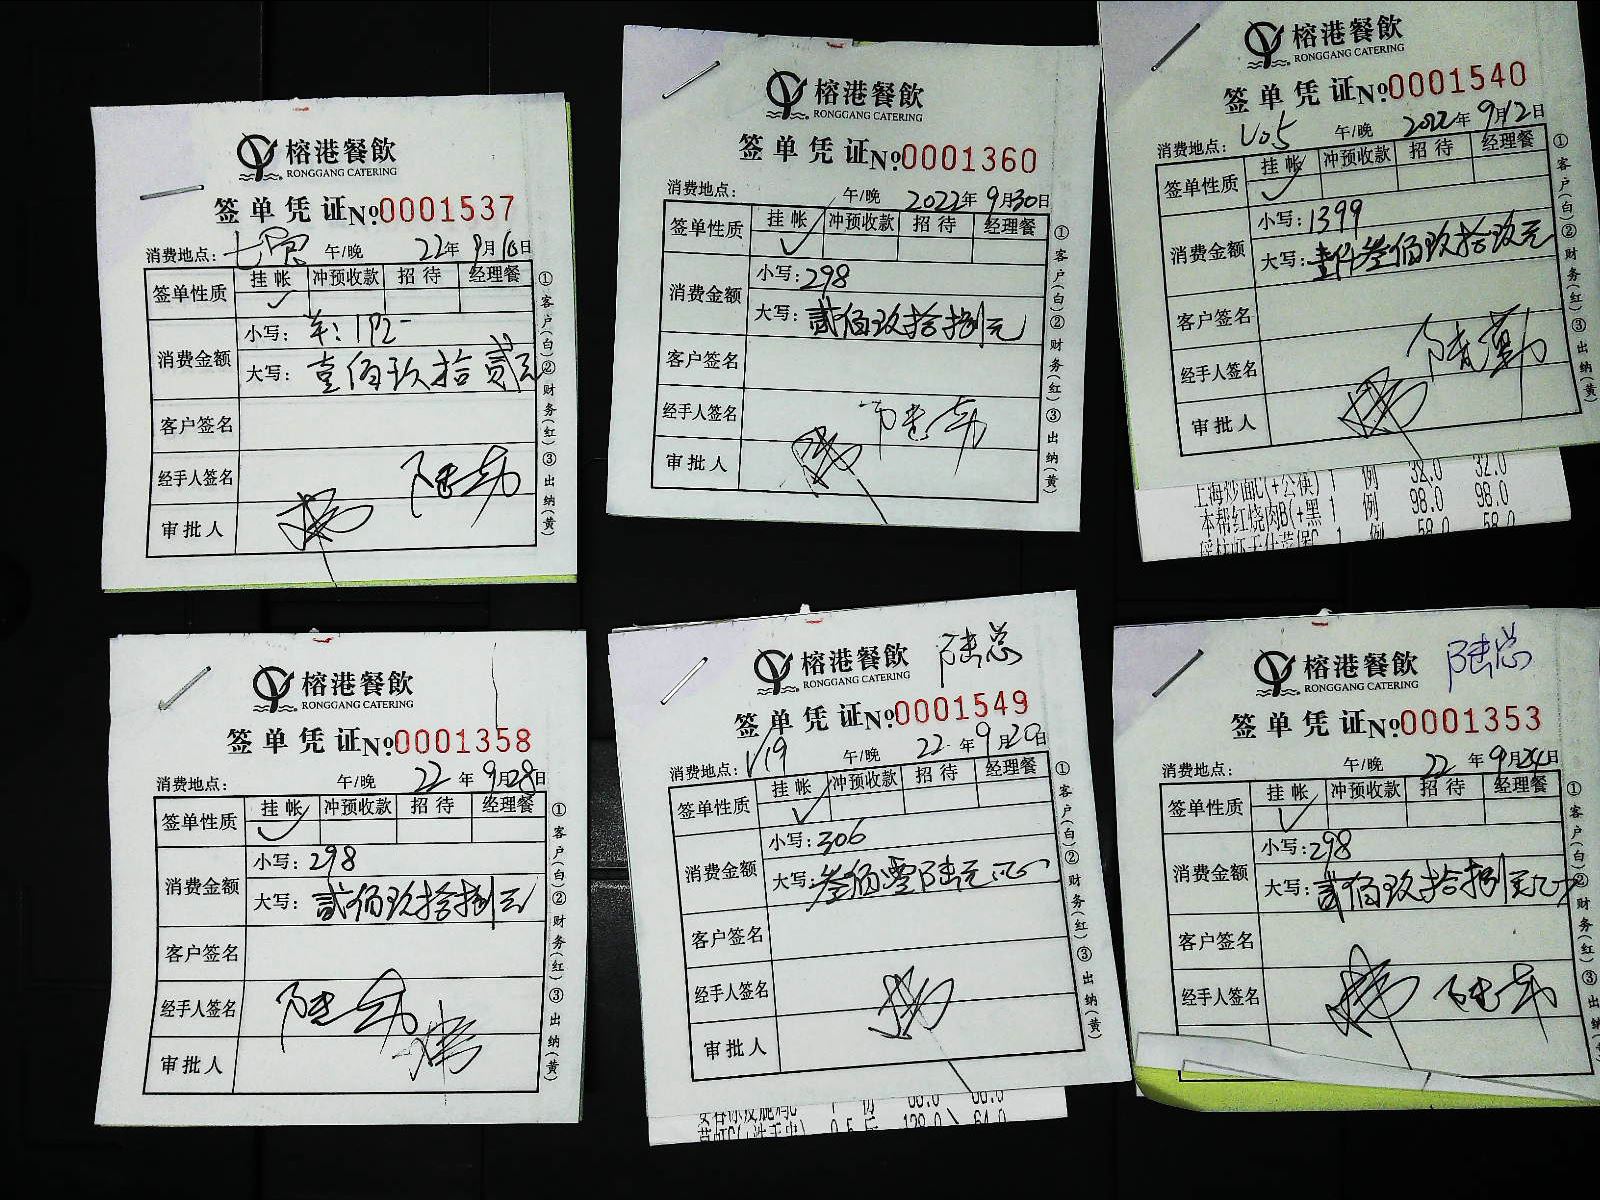 榕港餐飲
RONGGANG CATERING
签单凭证 №0001537
消费地点： 午/晚 22年9月10日
签单性质 挂帐 冲预收款 招待 经理餐
✓
消费金额
小写： 羊：192-
大写： 壹佰玖拾贰元
客户签名
经手人签名
审批人
①客户(白)②财务(红)③出纳(黄)
榕港餐飲
RONGGANG CATERING
签单凭证 №0001360
消费地点： 午/晚 2022年9月30日
签单性质 挂帐 冲预收款 招待 经理餐
✓
消费金额
小写：298
大写：贰佰玖拾捌元
客户签名
经手人签名
审批人
①客户(白)②财务(红)③出纳(黄)
榕港餐飲
RONGGANG CATERING
签单凭证 №0001540
消费地点： V05 午/晚 2022年9月12日
签单性质 挂帐 冲预收款 招待 经理餐
✓
消费金额
小写：1399
大写：壹仟叁佰玖拾玖元
客户签名
经手人签名
审批人
①客户(白)②财务(红)③出纳(黄)
上海炒面C(+公筷) 1 例 32.0 32.0
本帮红烧肉B(+黑 1 例 98.0 98.0
1 例 58.0 58.0
榕港餐飲
RONGGANG CATERING
签单凭证 №0001358
消费地点： 午/晚 22年9月28日
签单性质 挂帐 冲预收款 招待 经理餐
✓
消费金额
小写：298
大写：贰佰玖拾捌元
客户签名
经手人签名
审批人
①客户(白)②财务(红)③出纳(黄)
榕港餐飲 陆总
RONGGANG CATERING
签单凭证 №0001549
消费地点： V19 午/晚 22年9月20日
签单性质 挂帐 冲预收款 招待 经理餐
✓
消费金额
小写：306
大写：叁佰零陆元正
客户签名
经手人签名
审批人
①客户(白)②财务(红)③出纳(黄)
榕港餐飲 陆总
RONGGANG CATERING
签单凭证 №0001353
消费地点： 午/晚 22年9月24日
签单性质 挂帐 冲预收款 招待 经理餐
✓
消费金额
小写：298
大写：贰佰玖拾捌元
客户签名
经手人签名
①客户(白)②财务(红)③出纳